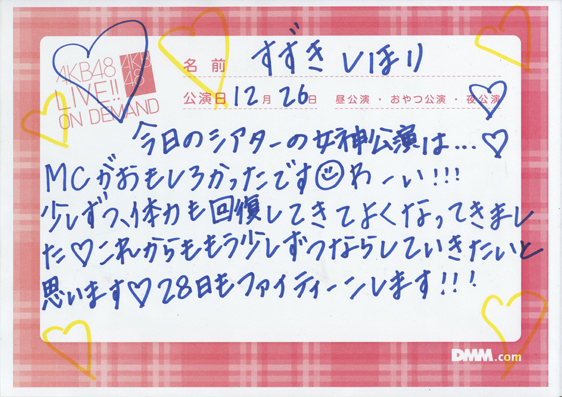 AKB48
LIVE!!
ON DEMAND
AKB
48
名前 すずきしほり
公演日 12月26日 昼公演・おやつ公演・夜公演
今日のシアターの女神公演は...♡
MCがおもしろかったです☺わーい!!!
少しずつ、体力も回復してきてよくなってきまし
た♡これからももう少しずつならしていきたいと
思います♡28日もファイティーンします!!!
DMM.com